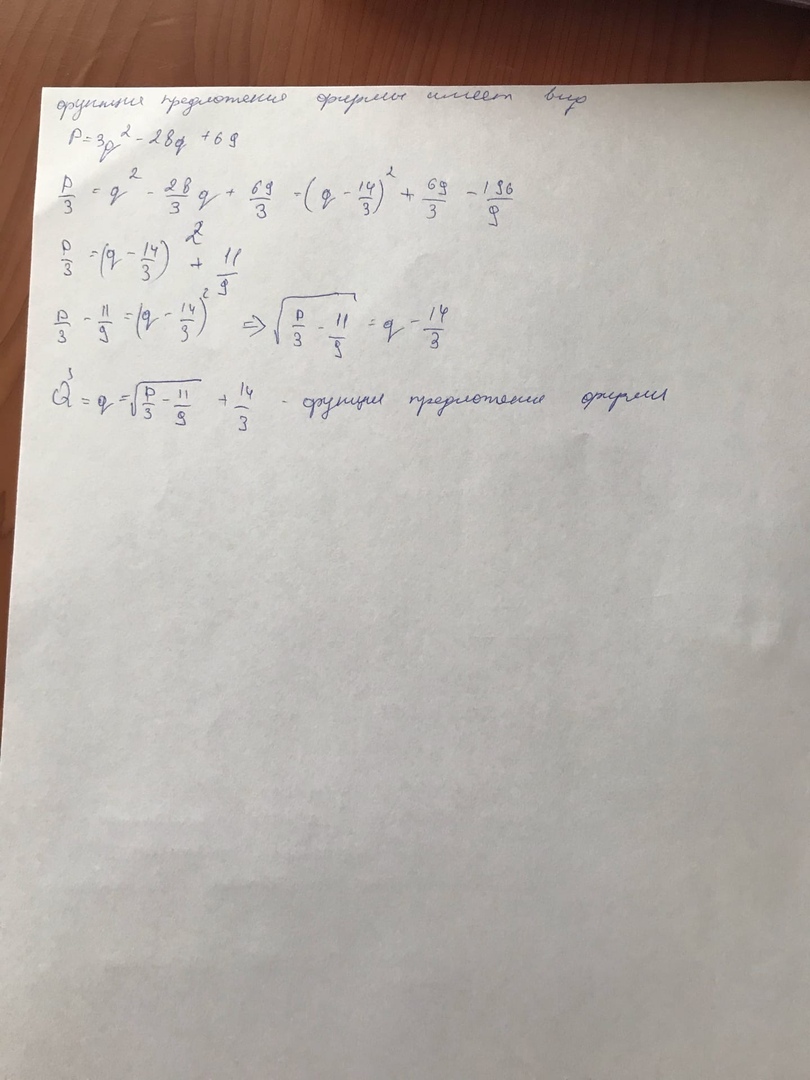 функция предложения фирмы имеет вид
P = 3q² - 28q + 69
P/3 = q² - 28/3 q + 69/3 = (q - 14/3)² + 69/3 - 196/9
P/3 = (q - 14/3)² + 11/9
P/3 - 11/9 = (q - 14/3)² ⇒ √(P/3 - 11/9) = q - 14/3
Qˢ = q = √(P/3 - 11/9) + 14/3 - функция предложения фирмы